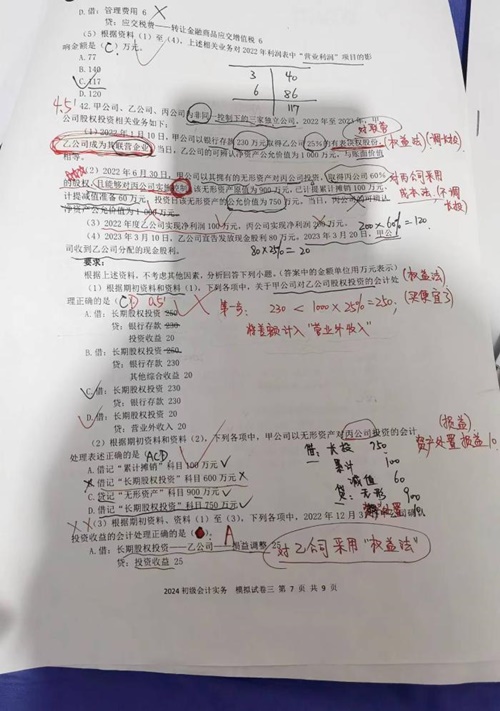 D.借：管理费用 6
贷：应交税费——转让金融商品应交增值税 6
(5) 根据资料（1）至（4），上述相关业务对 2022 年利润表中“营业利润”项目的影
响金额是（C）万元。
A. 77
B. 140
C. 117
D. 120
3 40
6 86
117
4.5' 42. 甲公司、乙公司、丙公司为非同一控制下的三家独立公司。2022 年至 2023 年，甲
公司股权投资相关业务如下：
(1) 2022 年 1 月 10 日，甲公司以银行存款 230 万元取得乙公司 25%的有表决权股份，
乙公司成为其联营企业，当日，乙公司的可辨认净资产公允价值为 1 000 万元，与账面价值
相等。
(2) 2022 年 6 月 30 日，甲公司以其拥有的无形资产对丙公司投资，取得丙公司 60%
的股权，且能够对丙公司实施控制，该无形资产原值为 900 万元，已计提累计摊销 100 万元，
计提减值准备 60 万元，投资日该无形资产的公允价值为 750 万元，
对丙公司采用
成本法
(3) 2022 年度乙公司实现净利润 100 万元，丙公司实现净利润 200 万元。
200×60%=120
(4) 2023 年 3 月 10 日，乙公司宣告发放现金股利 80 万元。2023 年 3 月 20 日，甲公
司收到乙公司分配的现金股利。
80×25%=20
要求：
根据上述资料，不考虑其他因素，分析回答下列小题。（答案中的金额单位用万元表示）
(1) 根据期初资料和资料（1），下列各项中，关于甲公司对乙公司股权投资的会计处
理正确的是（CD
(权益法)
(买便宜了)
第一步： 230 < 1000×25%=250，
将差额计入“营业外收入”
A. 借：长期股权投资 250
贷：银行存款 230
投资收益 20
B. 借：长期股权投资 250
贷：银行存款 230
其他综合收益 20
C. 借：长期股权投资 230
贷：银行存款 230
D. 借：长期股权投资 20
贷：营业外收入 20
(2) 根据期初资料和资料（2），下列各项中，甲公司以无形资产对丙公司投资的会计
处理表述正确的是（ACD
(损益)
资产处置损益10
A. 借记“累计摊销”科目 100 万元
B. 借记“长期股权投资”科目 600 万元
C. 贷记“无形资产”科目 900 万元
D. 借记“长期股权投资”科目 750 万元
借：长投 750
累计 100
减值 60
贷：无形 900
(3) 根据期初资料、资料（1）至（3），下列各项中，2022 年 12 月 3
投资收益的会计处理正确的是（ A
A. 借：长期股权投资——乙公司——损益调整 25
贷：投资收益 25
对乙公司采用“权益法”
2024 初级会计实务 模拟试卷三 第 7 页 共 9 页